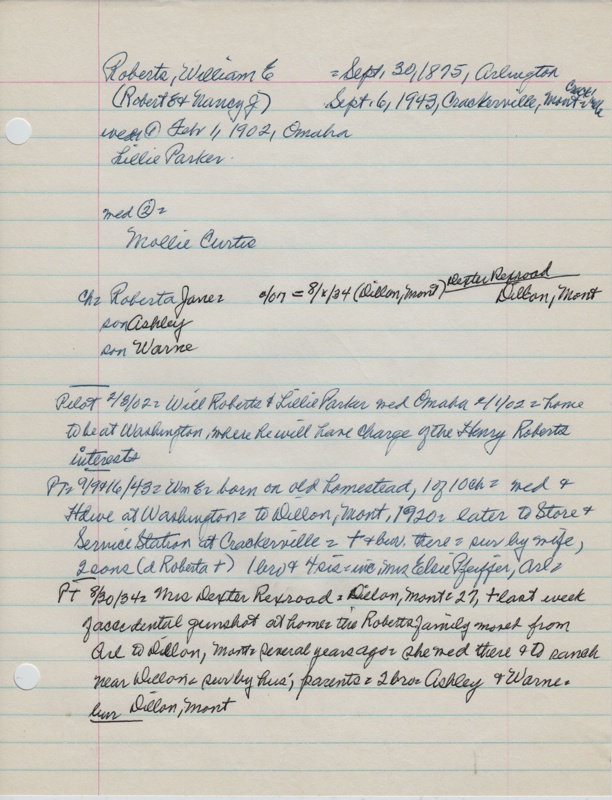 Roberts, William E = Sept. 30, 1875, Arlington
(Robert & Nancy J) Sept. 6, 1943, Crackerville, Mont=
med ① Feb 1, 1902, Omaha
Lillie Parker.
med ②=
Mollie Curtis
ch= Roberta Jane= /07 = 8/x/34 (Dillon, Mont) Dexter Rexroad Dillon, Mont
son Ashley
son Warne
Pilot 2/5/02= Will Roberts & Lillie Parker med Omaha 2/1/02= home
to be at Washington, where he will have charge of the Henry Roberts
interests
PT= 9/9&16/43= Wm E= born on old homestead, 1 of 10 ch= med &
live at Washington= to Dillon, Mont, 1920= later to Store &
Service Station at Crackerville = + & bur. there= sur by wife,
2 sons (d Roberta +) 1 bro & 4 sis= inc Mrs Elsie Pfeiffer, Arl=
PT 8/30/34= Mrs Dexter Rexroad = Dillon, Mont= 27, + last week
of accidental gunshot at home= the Roberts family moved from
Arl to Dillon, Mont= several years ago= she med there & to ranch
near Dillon= sur by hus; parents= 2 bro= Ashley & Warne=
bur Dillon, Mont